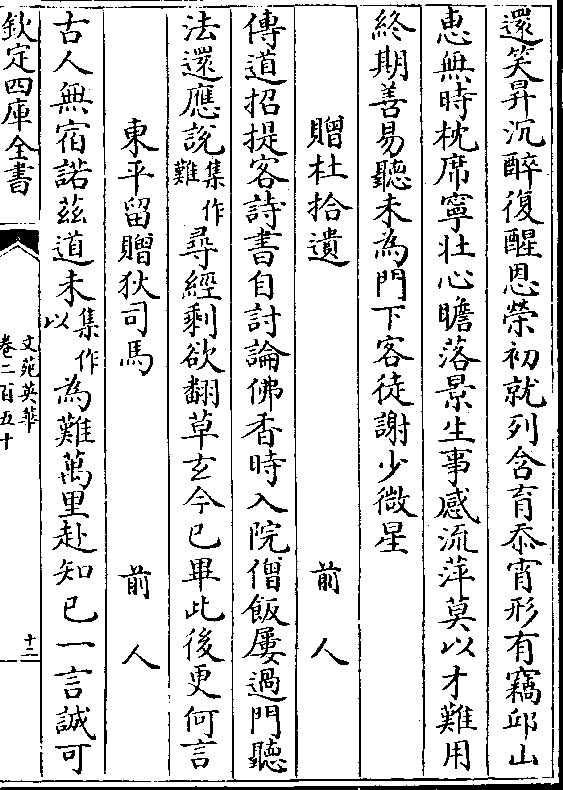 還笑昇沉醉復醒恩榮初就列含育忝宵形有竊邱山
惠無時枕席寧壯心瞻落景生事感流萍莫以才難用
終期善易聽未為門下客徒謝少微星
贈杜拾遺 前人
傳道招提客詩書自討論佛香時入院僧飯屢過門聽
法還應說集作難尋經剩欲翻草玄今已畢此後更何言
東平留贈狄司馬 前人
古人無宿諾茲道未集作以為難萬里赴知已一言誠可
欽定四庫全書
文苑英華
卷二百五十
十二